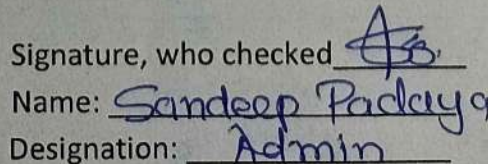 Signature, who checked
Name: Sandeep Padaya
Designation: Admin